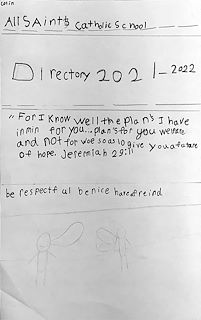 colin
All Saint's Catholic School
Directory 2021-2022
"For I know well the plan's I have
in min for you...plan's for you welfare
and not for woe so as to give you a future
of hope. Jeremiah 29:11
be respectful be nice have freind